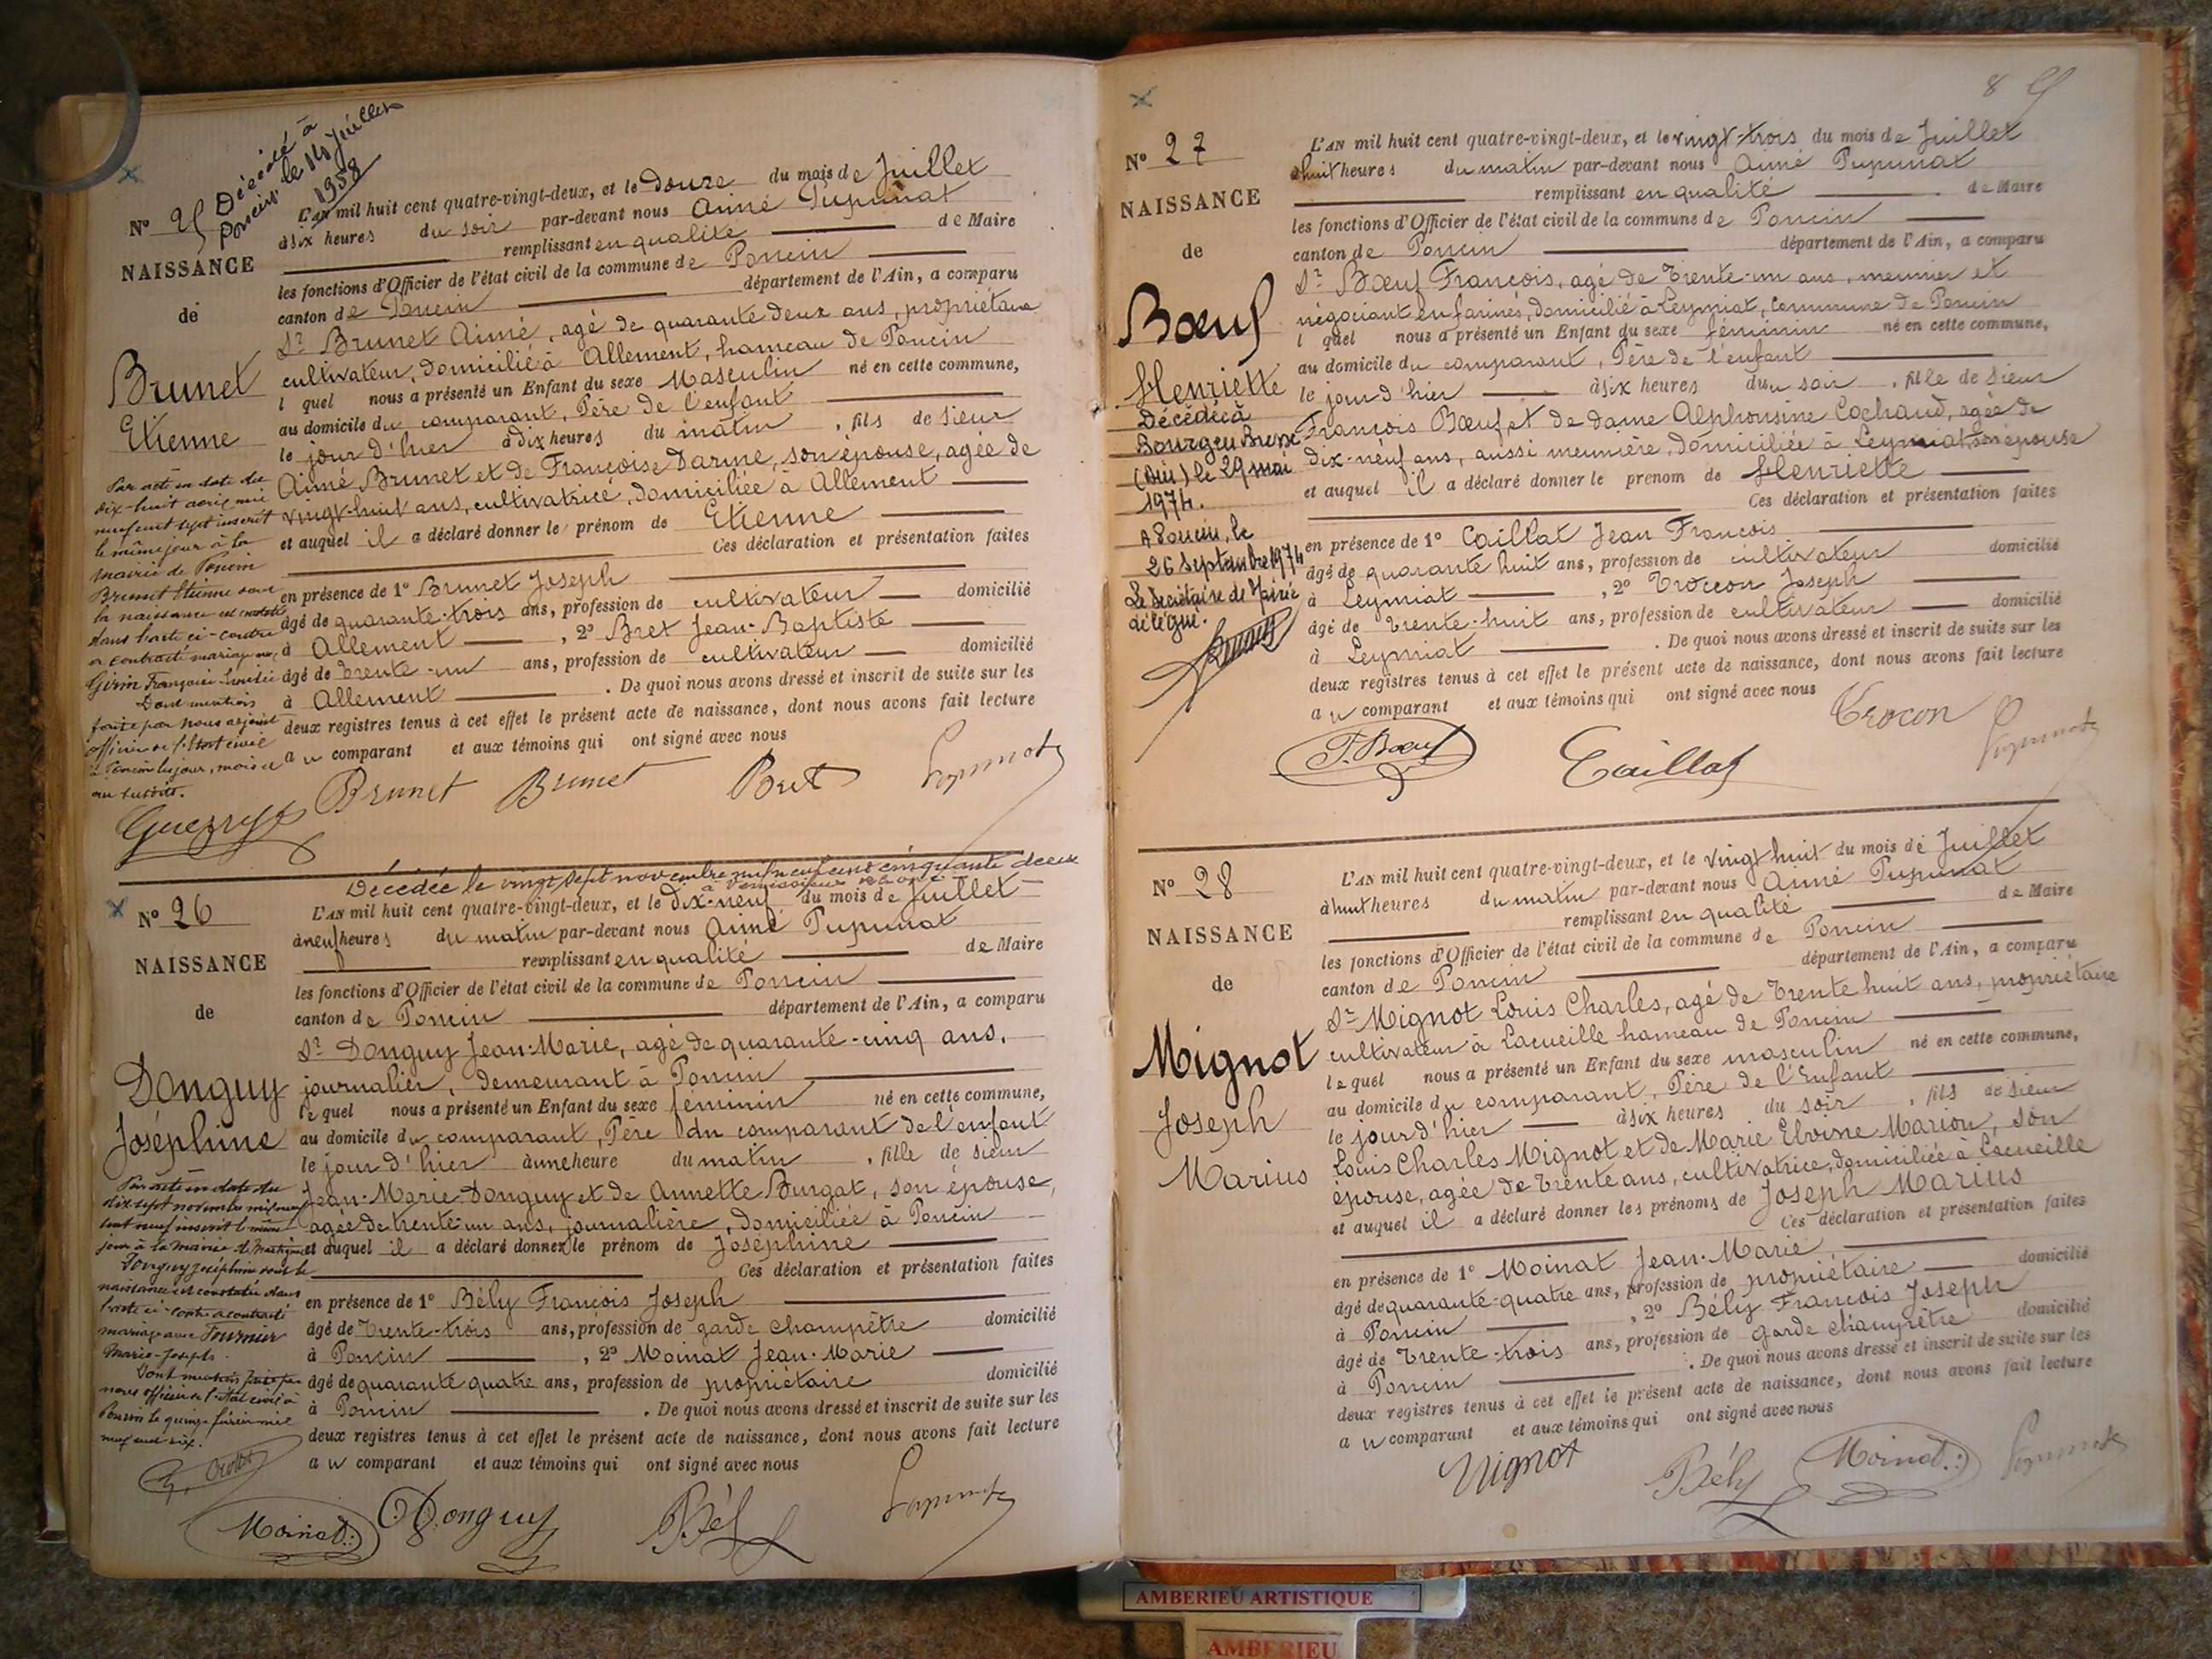 Décédé à
Poncin le 14 Juillet
1958
N° 25
NAISSANCE
de
Brunet
Etienne
Par acte en date du
dix-huit avril mil
neuf cent sept inscrit
le même jour à la
mairie de Poncin
Brunet Etienne dont
la naissance est constatée
dans l'acte ci-contre
a contracté mariage avec
Girin Françoise
Dont mention
faite par nous adjoint
officier de l'état civil
à Poncin les jour, mois et
an susdits.
L'AN mil huit cent quatre-vingt-deux, et le douze du mois de Juillet
à six heures du soir par-devant nous Aimé Pupunat
remplissant en qualité de Maire
les fonctions d'Officier de l'état civil de la commune de Poncin
canton de Poncin département de l'Ain, a comparu
Sr Brunet Aimé, agé de quarante deux ans, propriétaire
cultivateur, domicilié à Allement, hameau de Poncin
l quel nous a présenté un Enfant du sexe Masculin né en cette commune,
au domicile du comparant, Père de l'enfant
le jour d'hier à dix heures du matin, fils de sieur
Aimé Brunet et de Françoise Darme, son épouse, agée de
vingt-huit ans, cultivatrice, domiciliée à Allement
et auquel il a déclaré donner le prénom de Etienne
Ces déclaration et présentation faites
en présence de 1° Brunet Joseph
âgé de quarante-trois ans, profession de cultivateur domicilié
à Allement, 2° Bret Jean-Baptiste
âgé de trente-un ans, profession de cultivateur domicilié
à Allement. De quoi nous avons dressé et inscrit de suite sur les
deux registres tenus à cet effet le présent acte de naissance, dont nous avons fait lecture
au comparant et aux témoins qui ont signé avec nous
Brunet Brunet Bret Pupunat
Décédée le vingt sept novembre mil neuf cent cinquante deux
N° 26
NAISSANCE
de
Donguy
Joséphine
Par acte en date du
dix sept novembre mil neuf
cent neuf inscrit le même
jour à la mairie de
Donguy Joséphine dont la
naissance est constatée dans
l'acte ci-contre a contracté
mariage avec Fournier
Marie-Joseph.
Dont mention faite par
nous officier de l'état civil à
Poncin le quinze février mil
neuf cent dix.
L'AN mil huit cent quatre-vingt-deux, et le dix-neuf du mois de Juillet
à neuf heures du matin par-devant nous Aimé Pupunat
remplissant en qualité de Maire
les fonctions d'Officier de l'état civil de la commune de Poncin
canton de Poncin département de l'Ain, a comparu
Sr Donguy Jean-Marie, agé de quarante-cinq ans,
journalier, demeurant à Poncin
lequel nous a présenté un Enfant du sexe féminin né en cette commune,
au domicile du comparant, Père du comparant de l'enfant
le jour d'hier à une heure du matin, fille de sieur
Jean-Marie Donguy et de Annette Burgat, son épouse,
agée de trente-un ans, journalière, domiciliée à Poncin
et auquel il a déclaré donner le prénom de Joséphine
Ces déclaration et présentation faites
en présence de 1° Bély François Joseph
âgé de trente-trois ans, profession de garde champêtre domicilié
à Poncin, 2° Moinat Jean-Marie
âgé de quarante quatre ans, profession de propriétaire domicilié
à Poncin. De quoi nous avons dressé et inscrit de suite sur les
deux registres tenus à cet effet le présent acte de naissance, dont nous avons fait lecture
au comparant et aux témoins qui ont signé avec nous
Moinat Donguy Bély Pupunat
8
N° 27
NAISSANCE
de
Bœuf
Henriette
Décédée à
Bourg en Bresse
(Ain) le 29 mai
1974.
A Poncin, le
26 Septembre 1974
Le Secrétaire de Mairie
délégué.
L'AN mil huit cent quatre-vingt-deux, et le vingt-trois du mois de Juillet
à huit heures du matin par-devant nous Aimé Pupunat
remplissant en qualité de Maire
les fonctions d'Officier de l'état civil de la commune de Poncin
canton de Poncin département de l'Ain, a comparu
Sr Bœuf François, agé de trente-un ans, meunier et
négociant en farines, domicilié à Leymiat, commune de Poncin
l quel nous a présenté un Enfant du sexe féminin né en cette commune,
au domicile du comparant, Père de l'enfant
le jour d'hier à six heures du soir, fille de sieur
François Bœuf et de dame Alphonsine Cochaud, agée de
dix-neuf ans, aussi meunière, domiciliée à Leymiat, son épouse
et auquel il a déclaré donner le prenom de Henriette
Ces déclaration et présentation faites
en présence de 1° Caillat Jean François
âgé de quarante huit ans, profession de cultivateur domicilié
à Leymiat, 2° Troccon Joseph
âgé de trente-huit ans, profession de cultivateur domicilié
à Leymiat. De quoi nous avons dressé et inscrit de suite sur les
deux registres tenus à cet effet le présent acte de naissance, dont nous avons fait lecture
au comparant et aux témoins qui ont signé avec nous
F. Bœuf Caillat Trocon Pupunat
N° 28
NAISSANCE
de
Mignot
Joseph
Marius
L'AN mil huit cent quatre-vingt-deux, et le vingt huit du mois de Juillet
à huit heures du matin par-devant nous Aimé Pupunat
remplissant en qualité de Maire
les fonctions d'Officier de l'état civil de la commune de Poncin
canton de Poncin département de l'Ain, a comparu
Sr Mignot Louis Charles, agé de trente huit ans, propriétaire
cultivateur à Lacueille hameau de Poncin
lequel nous a présenté un Enfant du sexe masculin né en cette commune,
au domicile du comparant, Père de l'Enfant
le jour d'hier à six heures du soir, fils de sieur
Louis Charles Mignot et de Marie Elvoine Marion, son
épouse, agée de trente ans, cultivatrice, domiciliée à Lacueille
et auquel il a déclaré donner les prénoms de Joseph Marius
Ces déclaration et présentation faites
en présence de 1° Moinat Jean-Marie
âgé de quarante-quatre ans, profession de propriétaire domicilié
à Poncin, 2° Bély François Joseph
âgé de trente-trois ans, profession de garde champêtre domicilié
à Poncin. De quoi nous avons dressé et inscrit de suite sur les
deux registres tenus à cet effet le présent acte de naissance, dont nous avons fait lecture
au comparant et aux témoins qui ont signé avec nous
Mignot Bély Moinat Pupunat
AMBERIEU ARTISTIQUE
AMBERIEU